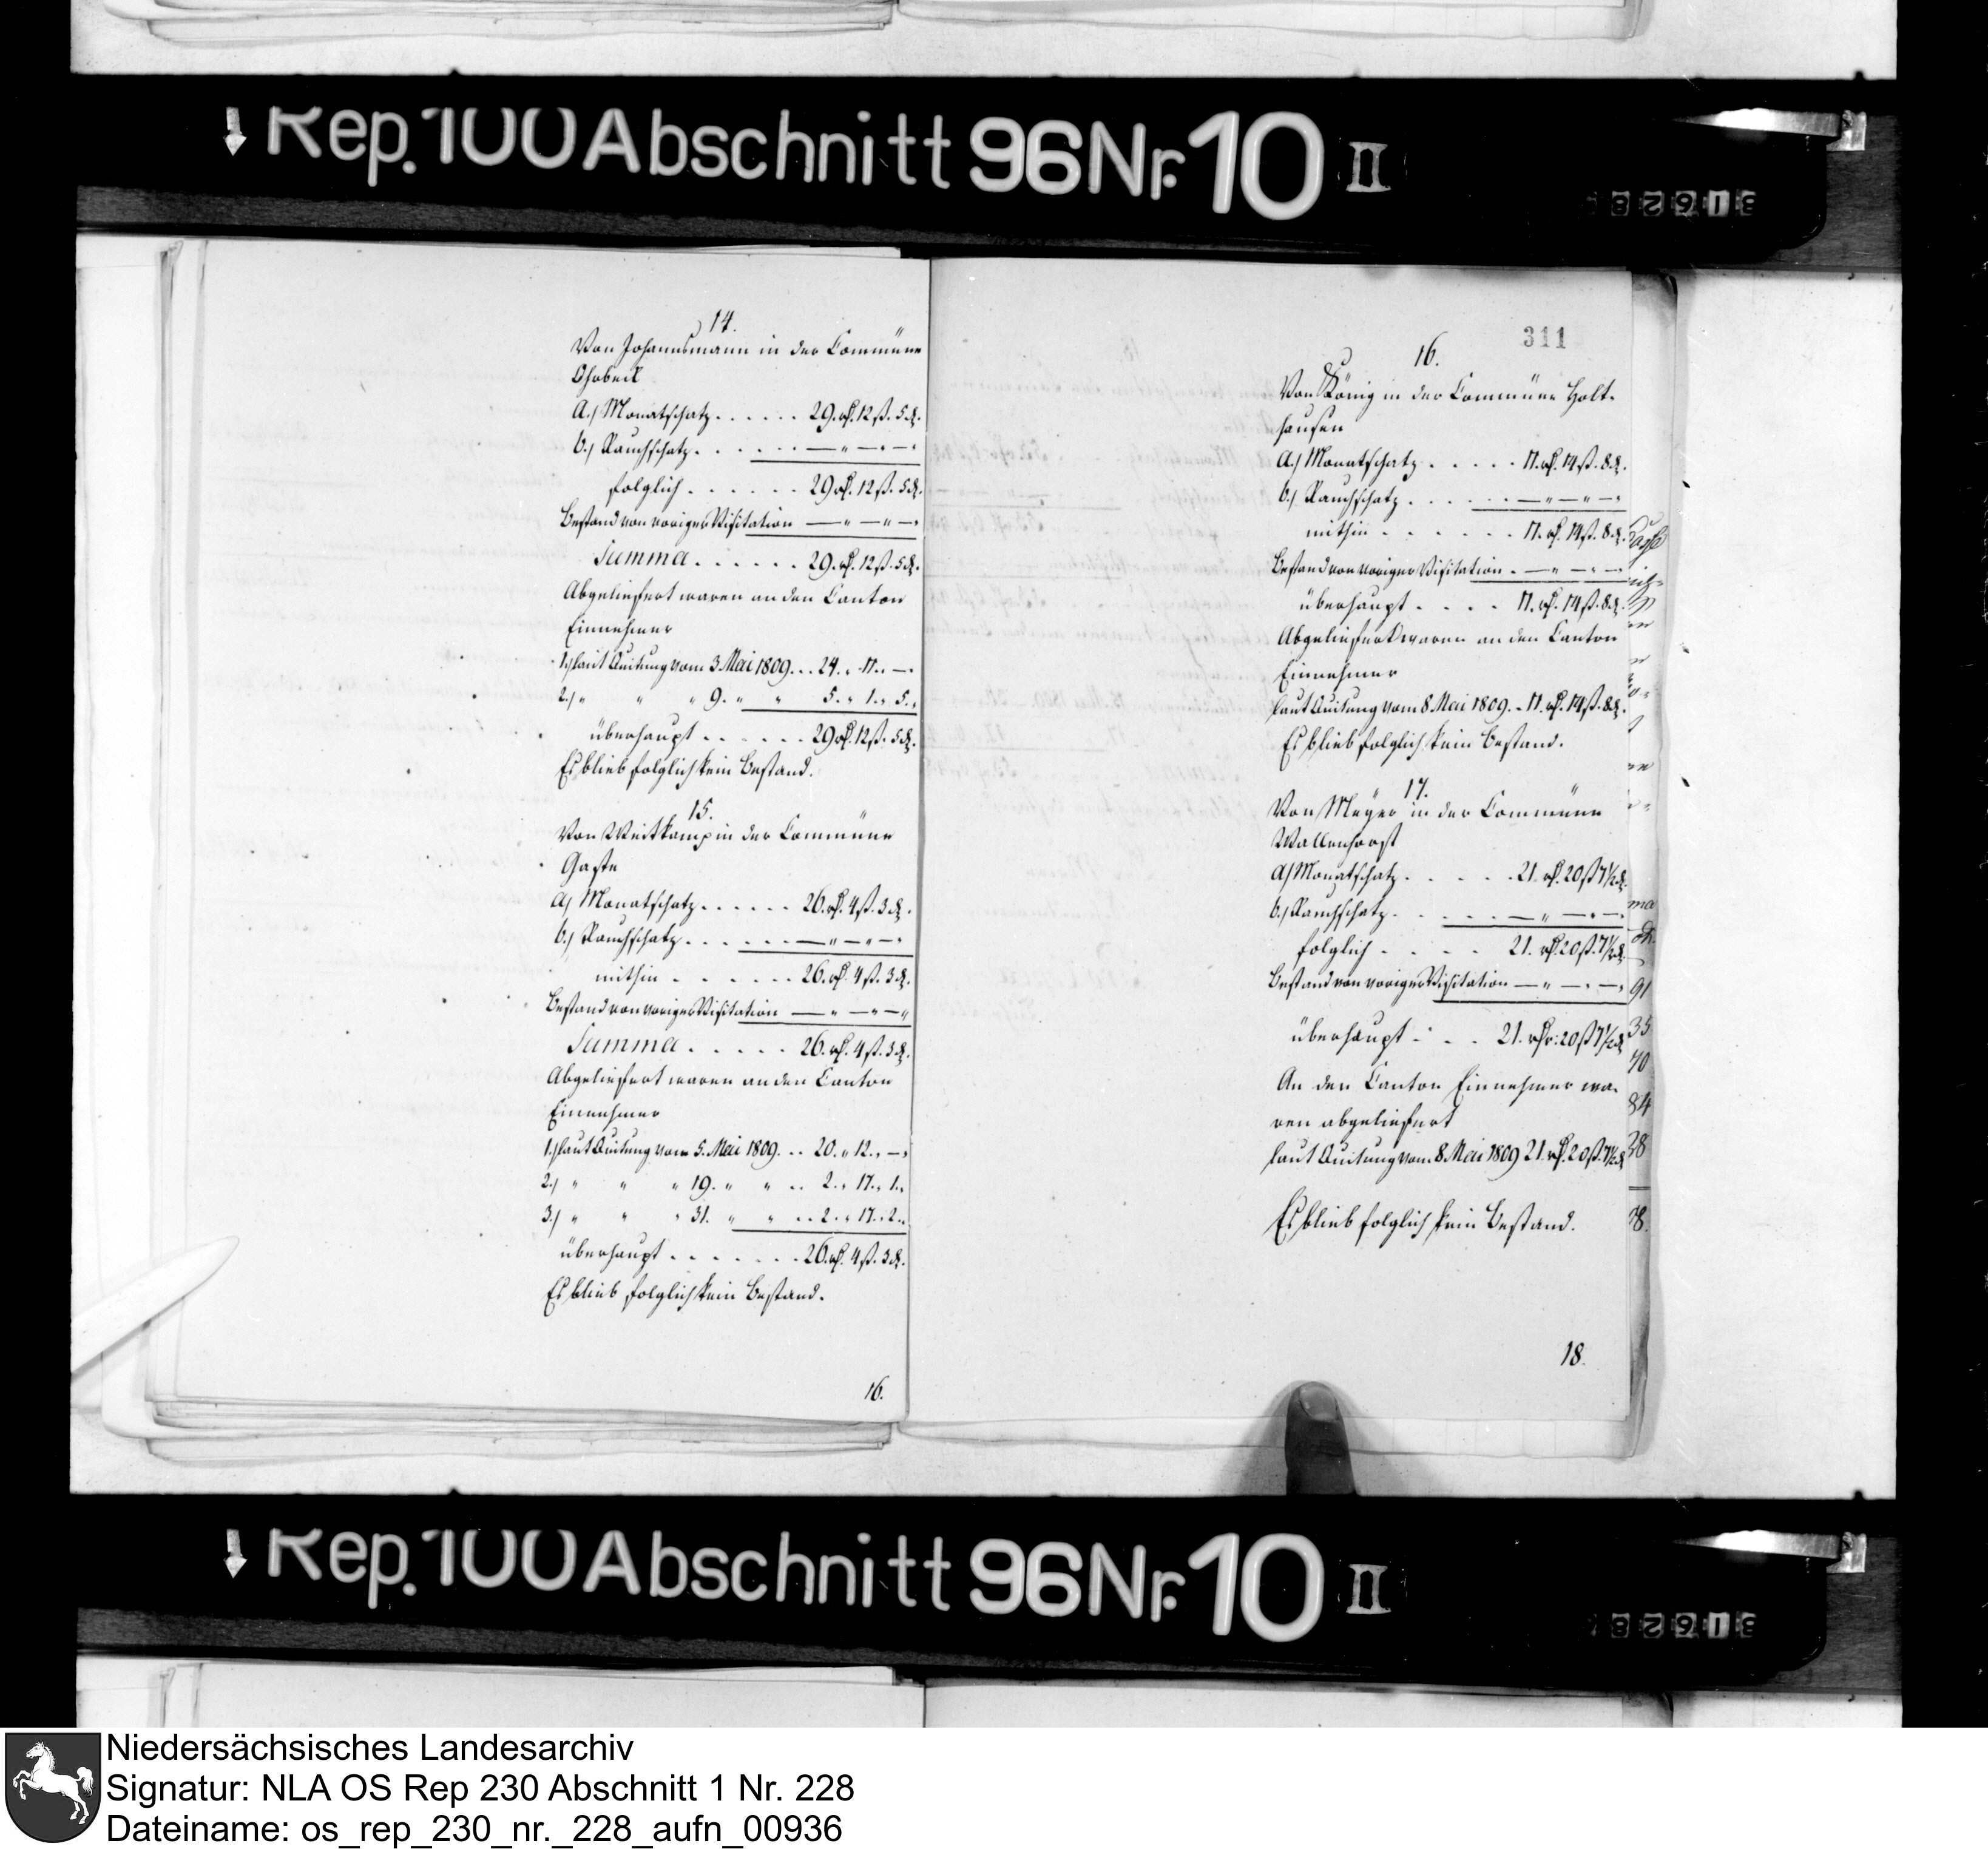 Rep. 100 Abschnitt 96 Nr. 10 II
31628
14.
Von Johannsmann in der Commüne
Ohrbeck
a.) Monatschatz . . . . . . 29. rthl. 12 ß. 5 d.
b.) Rauchschatz . . . . . . — „ — „ — „
folglich . . . . . . 29 rthl. 12 ß. 5 d.
Bestand von voriger Visitation — „ — „ — „
Summa . . . . . . 29. rthl. 12 ß. 5 d.
Abgeliefert waren an den Canton
Einnehmer
1.) laut Quitung vom 3 Mai 1809. . . 24. „ 11. „ —
2.) „ „ „ 9. „ „ 5. „ 1. „ 5. „
überhaupt . . . . . . 29 rthl. 12 ß. 5 d.
Es blieb folglich kein Bestand.
15.
Von Weitkamp in der Commüne
Gaste
a.) Monatschatz . . . . . . 26. rthl. 4 ß. 3 d.
b.) Rauchschatz . . . . . . — „ — „ — „
mithin . . . . . . 26. rthl. 4 ß. 3 d.
Bestand von voriger Visitation — „ — „ — „
Summa . . . . . 26. rthl. 4 ß. 3 d.
Abgeliefert waren an den Canton
Einnehmer
1.) laut Quitung vom 5. Mai 1809. . . 20. „ 12. „ — „
2.) „ „ „ 19. „ „ . . 2. „ 17. „ 1. „
3.) „ „ „ 31. „ „ . . 2. „ 17. „ 2. „
überhaupt . . . . . . . 26. rthl. 4 ß. 3 d.
Es blieb folglich kein Bestand.
16.
311
16.
Von König in der Commüne Holt-
hausen
a.) Monatschatz . . . . . 11. rthl. 14 ß. 8 d.
b.) Rauchschatz . . . . . . — „ — „ — „
mithin . . . . . . 11. rthl. 14 ß. 8 d.
Bestand von voriger Visitation . — „ — „ — „
überhaupt . . . . 11. rthl. 14 ß. 8 d.
Abgeliefert waren an den Canton
Einnehmer
laut Quitung vom 8 Mai 1809. . 11. rthl. 14 ß. 8 d.
Es blieb folglich kein Bestand.
17.
Von Meÿer in der Commüne
Wallenhorst
a.) Monatschatz . . . . . 21. rthl. 20 ß 7½ d.
b.) Rauchschatz . . . . . . — „ — „ — „
folglich . . . . 21. rthl. 20 ß. 7½ d.
Bestand von voriger Visitation — „ — „ — „
überhaupt . . . 21. rthlr: 20 ß 7½ d
An den Canton Einnehmer wa-
ren abgeliefert
laut Quitung vom 8 Mai 1809 21. rthl. 20 ß. 7½ d
Es blieb folglich kein Bestand.
18.
91
35
70
84
38
78.
Rep. 100 Abschnitt 96 Nr. 10 II
31628
Niedersächsisches Landesarchiv
Signatur: NLA OS Rep 230 Abschnitt 1 Nr. 228
Dateiname: os_rep_230_nr._228_aufn_00936